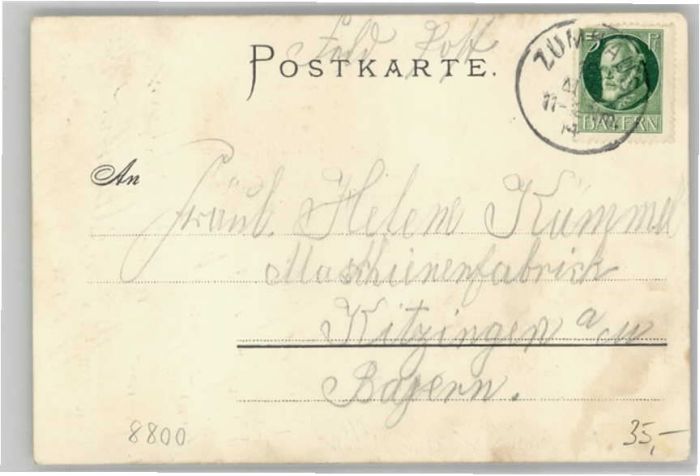 Feld Post
POSTKARTE.
5 Pf
BAYERN
ZUM
An
Fräul. Helene Kümmel
Maschienenfabrick
Kitzingen a/M
Bayern.
8800
35,-